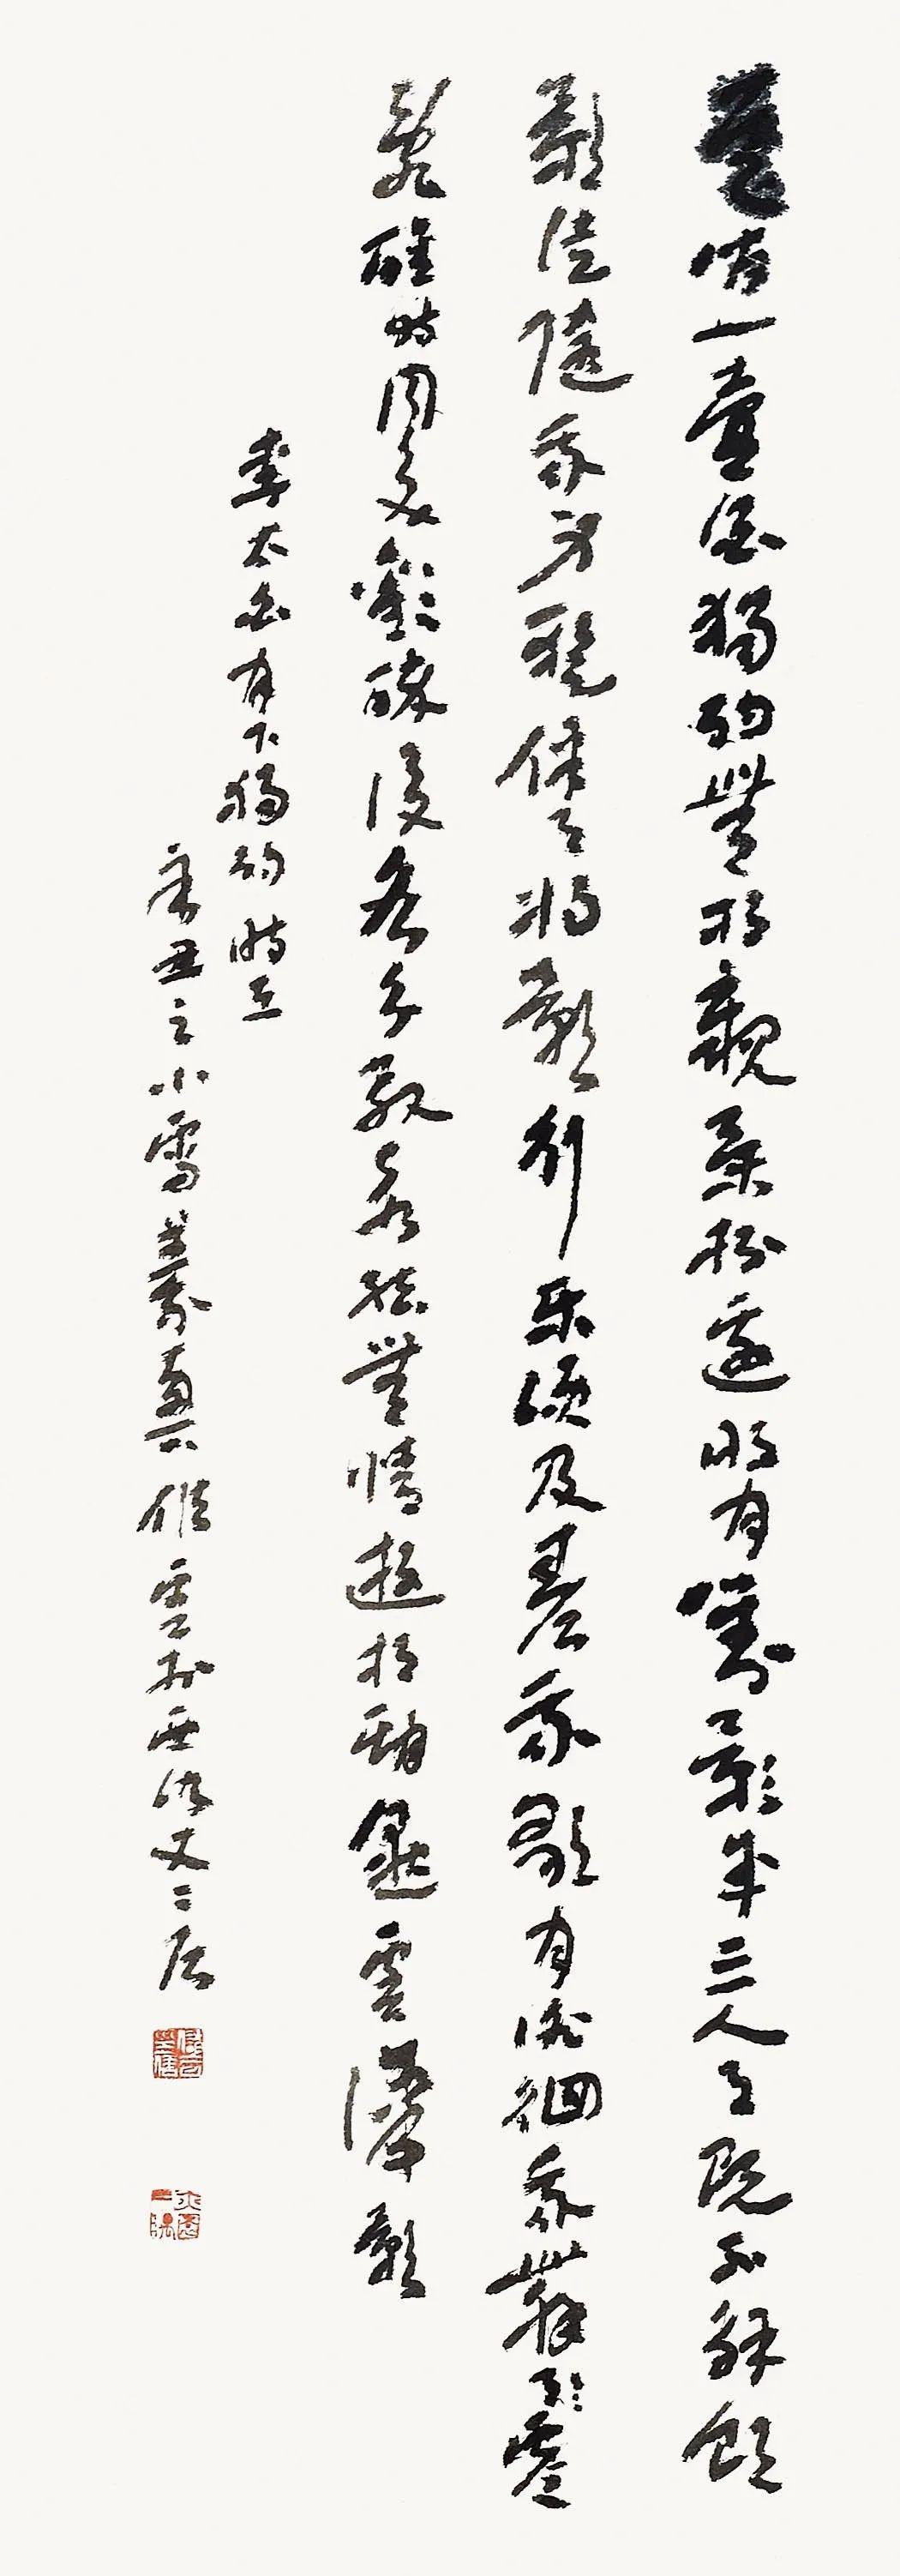 花間一壺酒獨酌無相親舉杯邀明月對影成三人月既不解飲
影徒隨我身暫伴月將影行樂須及春我歌月徘徊我舞影零
亂醒時同交歡醉後各分散永結無情遊相期邈雲漢
李太白月下獨酌時在
辛丑之小雪